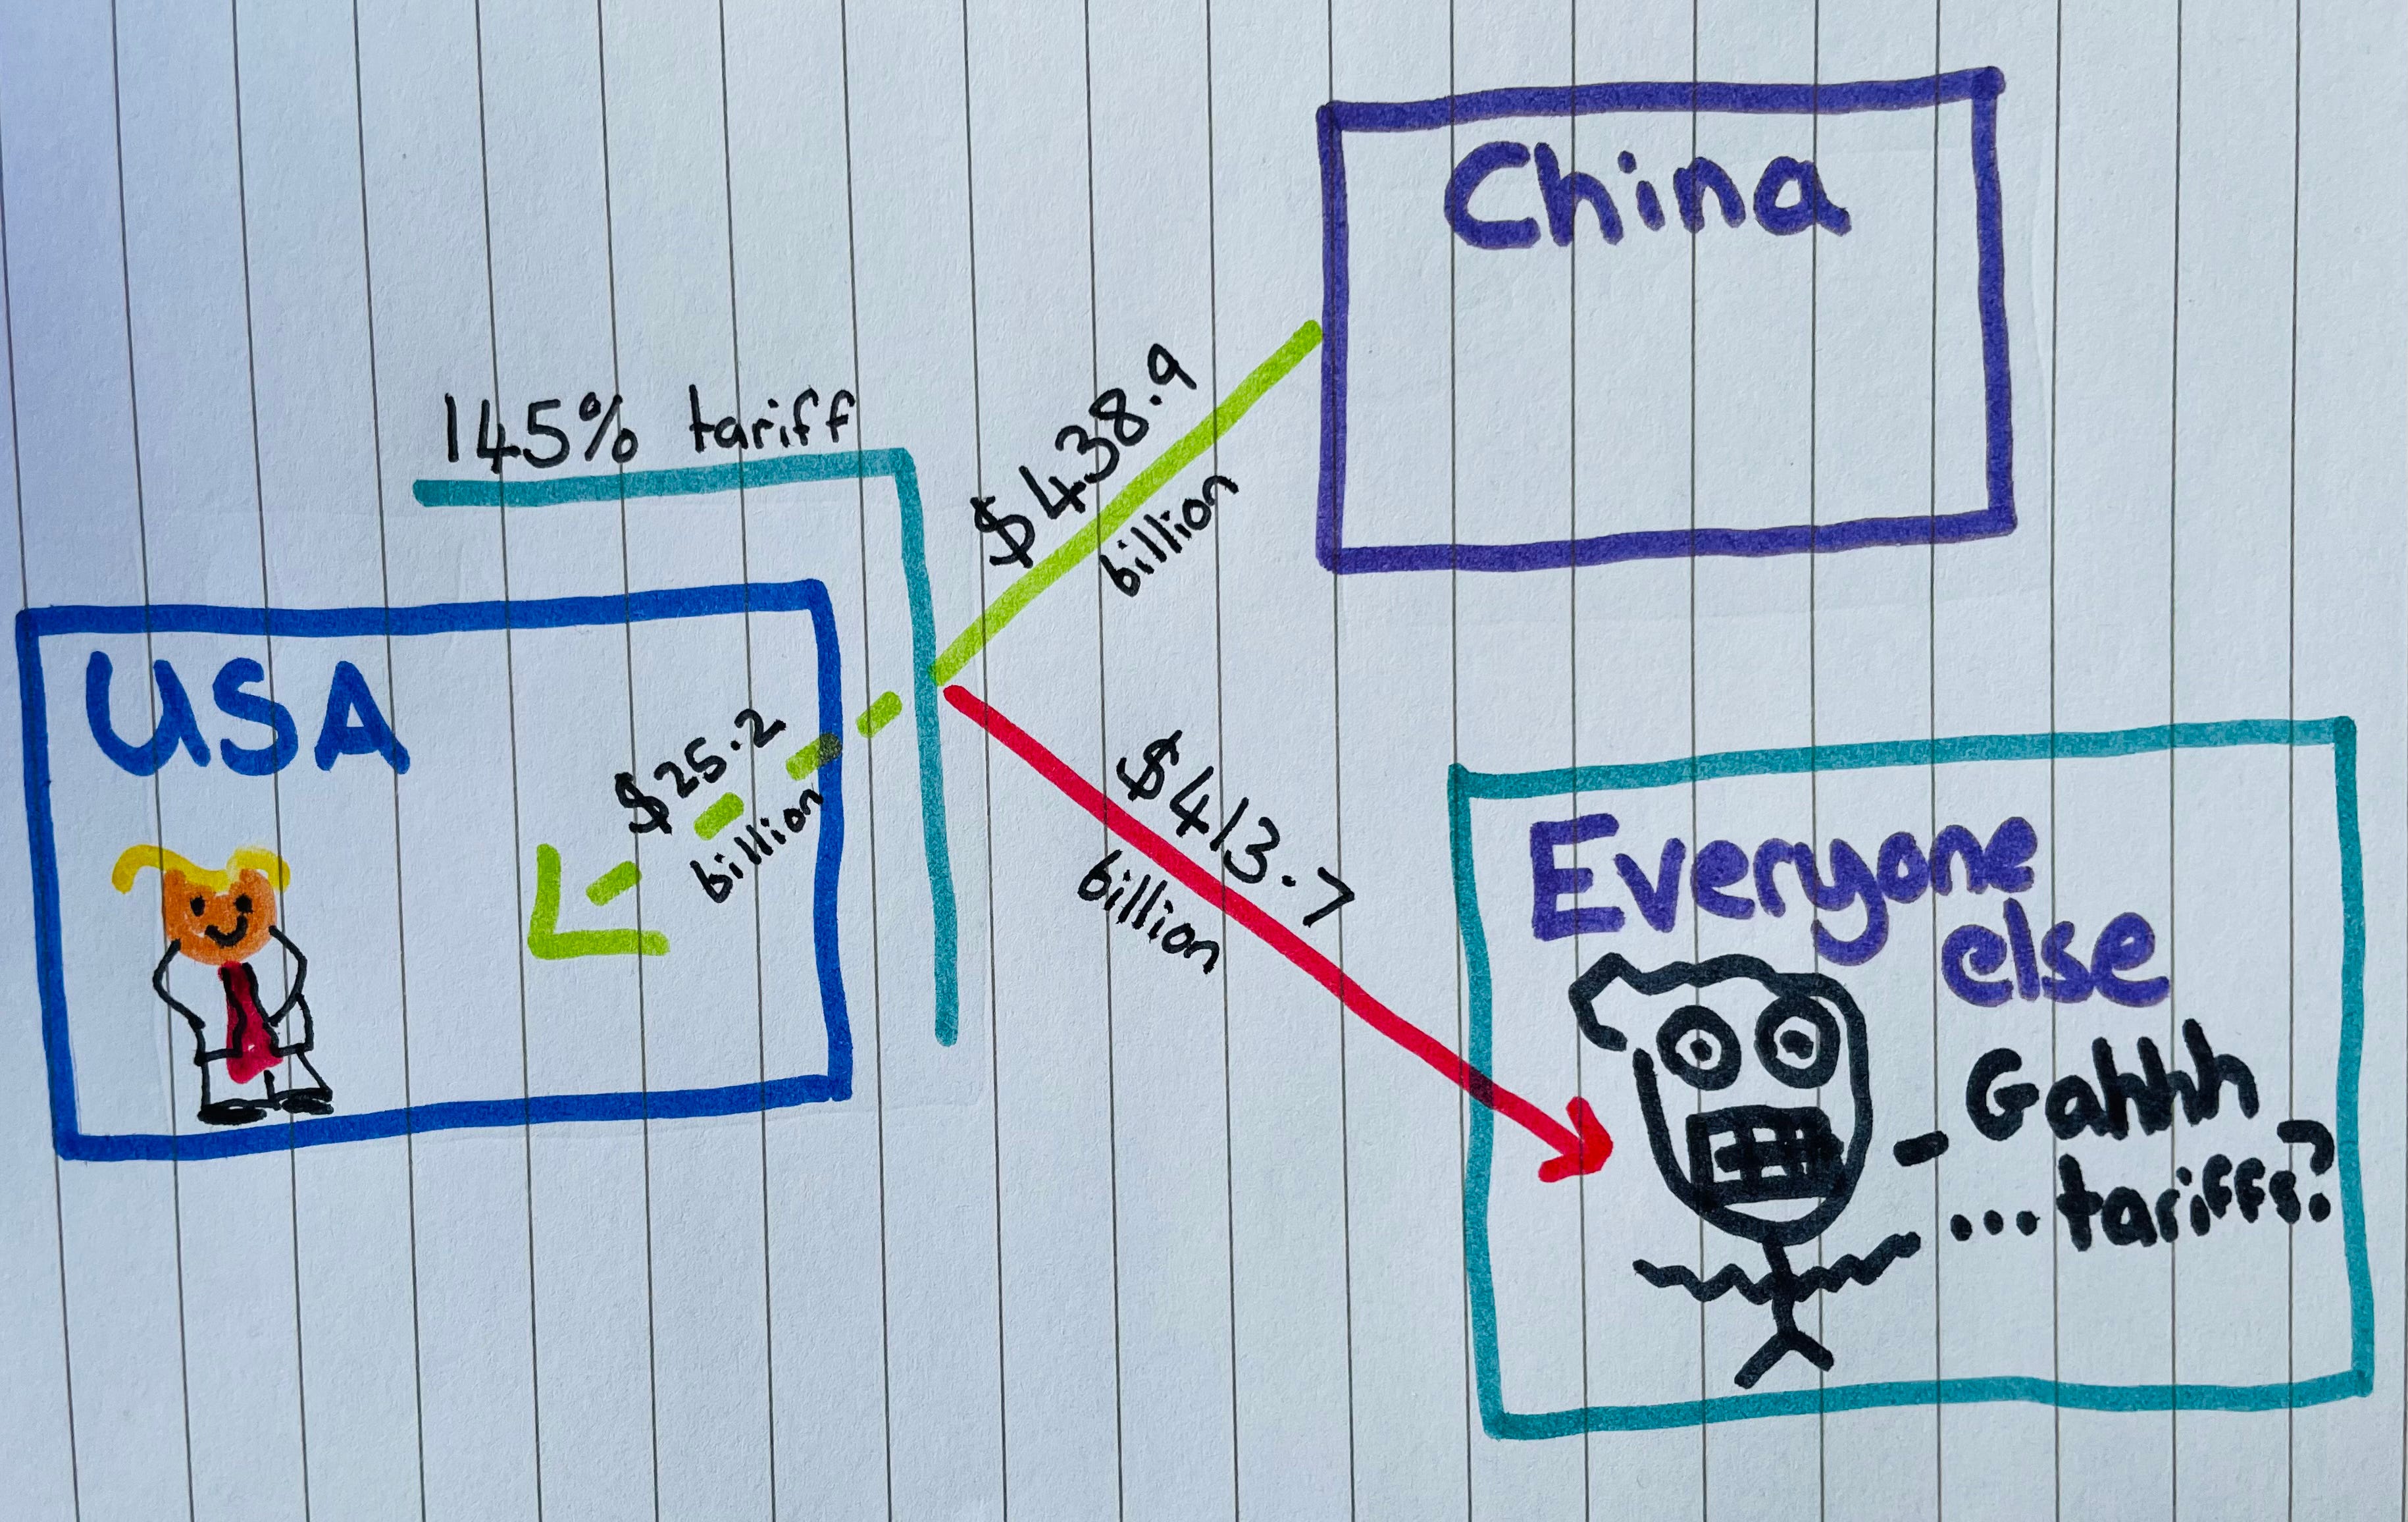 China
145% tariff
$438.9
billion
USA
$25.2
billion
$413.7
billion
Everyone
else
- Gahhh
...tariffs?